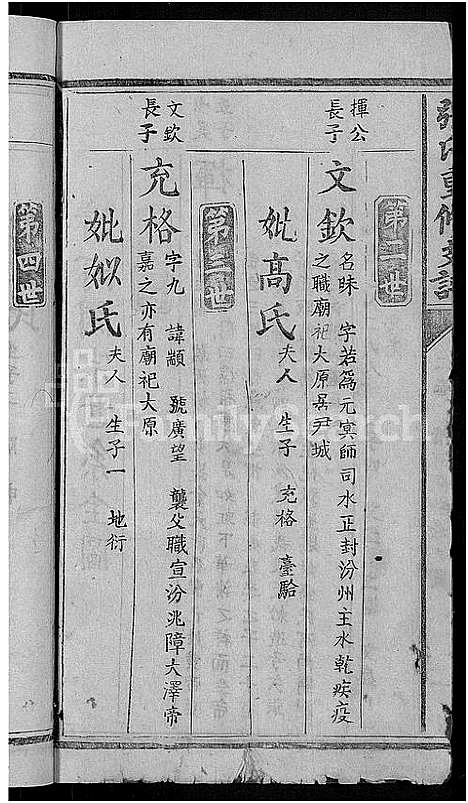 張氏重修支譜
第二世
揮公
長子
文欽
名昧 字若為元寅師司水正封汾州主水乾疾疫
之職廟祀大原居尹城
妣高氏
夫人 生子 充格 臺駘
第三世
文欽
長子
充格
字九 諱顓 號廣望 襲父職宣汾洮障大澤帝
嘉之亦有廟祀大原
妣姒氏
夫人 生子一 地衍
第四世
FamilySearch